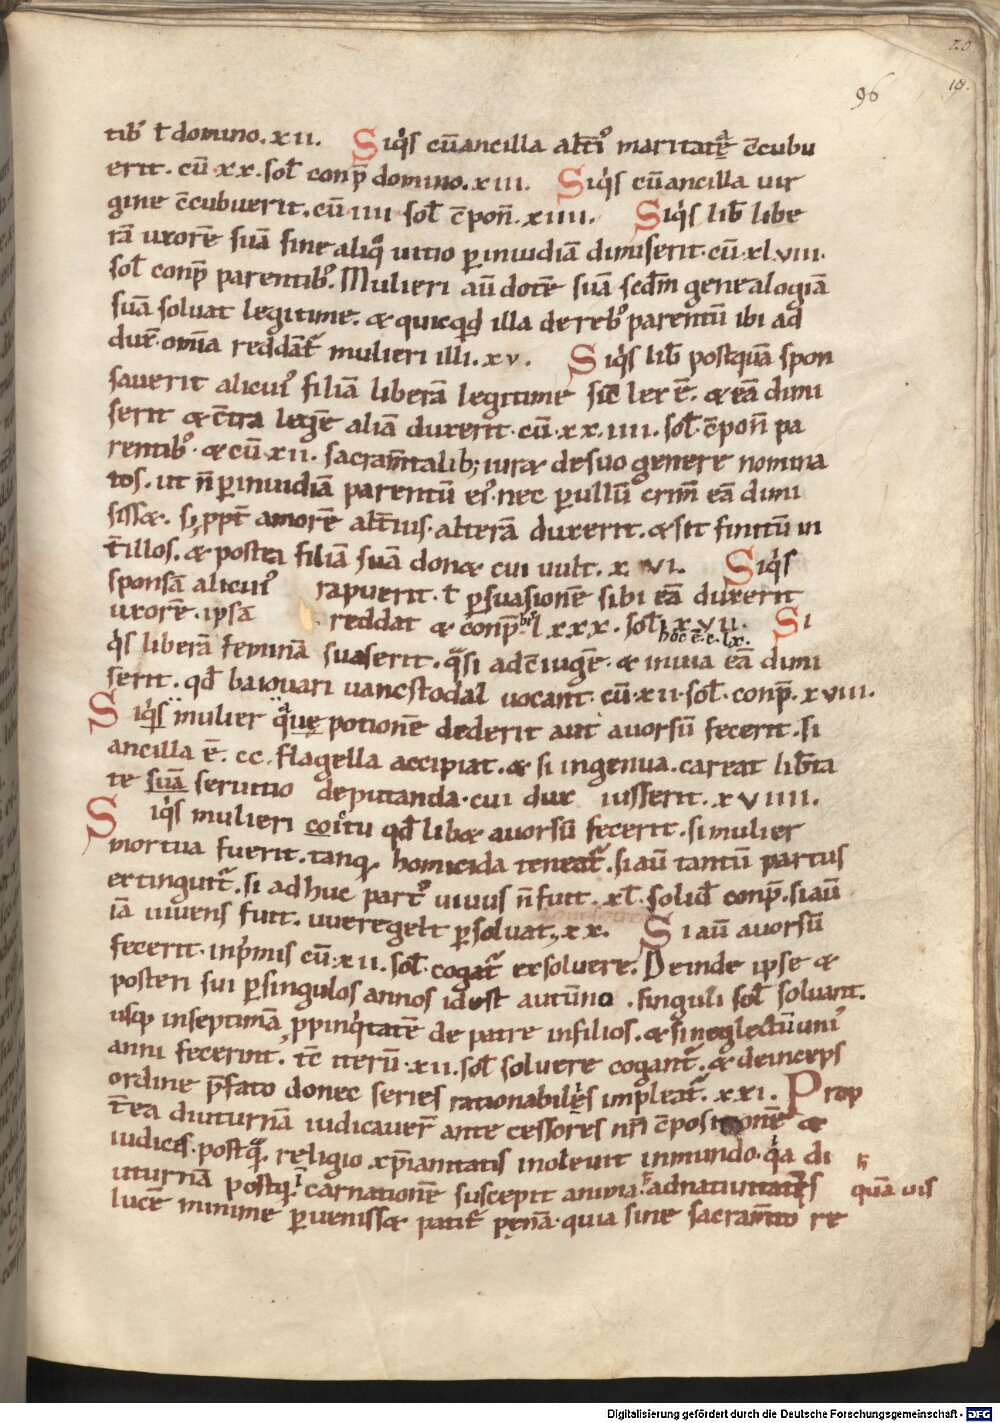 20
96
19.
tib᷒ ł domino. xii. Siqͥs cū ancilla alt̄i᷒ maritatͣę c̄cubu
erit. cū xx. sol̄ conp̄ domino. xiii. Siqͥs cū ancilla uir
gine c̄cubuerit. cū iiii sol̄ c̄pon̄. xiiii. Siqͥs lib̄ libe
rā uxorē suā sine aliqͦ uitio ꝑ inuidiā dimiserit. cū xlviii.
sol̄ conp̄ parentib᷒. Mulieri aū dotē suā scdm̄ genealogiā
suā soluat legitime. & quicqͥd illa de reb᷒ parentū ibi ad
dux̄. om̄ia reddat̄ mulieri illi. xv. Siqͥs lib̄ postquā spon
sauerit alicui᷒ filiā liberā legitime sic̄ lex ē. & eā dimi
serit & c̄tra legē aliā duxerit. cū xx. iiii. sol̄ c̄pon̄ pa
rentib᷒. & cū xii. sacram̄talib; iur& de suo genere nomina
tos. ut n̄ ꝑ inuidiā parentū ei᷒. nec ꝑ ullū crim̄ eā dimi
siss&. s; ppt̄ amorē alt̄ius. alterā duxerit. & sit finitū in
t̄ illos. & postea filiā suā don& cui uult. x. vi. Siqͥs
sponsā alicui᷒ rapuerit. ł ꝑsuasionē sibi eā duxerit
uxorē. ipsā reddat & conp̄ bͥs lxxx. sol̄ x. vii. Si
hoc ē. c. lx.
qͥs liberā feminā suaserit. qͣsi ad c̄iugē. & in uia eā dimi
serit. qd̄ baiouari uancstodal uocant. cū xii. sol̄. conp̄. xviii.
Siqͥs mulier qͣuę potionē dederit aut auorsū fecerit. si
ancilla ē. cc. flagella accipiat. & si ingenua. careat lib̄ta
te suā seruitio deputanda. cui dux iusserit. xviiii.
Siqͥs mulieri coitu qd̄ lib& auorsū fecerit. si mulier
mortua fuerit. tanqͣ homicida teneat̄. si aū tantū partus
extinguit̄. si adhuc part᷒ uiuus n̄ fuit. xl. solid̄ conp̄. si aū
iā uiuens fuit. uueregelt ꝑsoluat. xx. Si aū auorsū
fecerit. inpͥmis cū xii. sol̄. cogat̄ exsoluere. Deinde ipse &
posteri sui ꝑ singulos annos id est autūno . singuli sol̄ soluant.
usqͣ in septimā ꝓpinqͥtatē de patre in filios. & si neglectū uni᷒
anni fecerint. tc̄ iterū. xii. sol̄ soluere cogant̄. & deinceps
ordine p̄fato donec series rationabilis impleat̄. xxi. Prop
t̄ ea diuturnā iudicauer̄ ante cessores nr̄i c̄positionē &
iudices. postqͣ. religio xp̄ianitatis inoleuit in mundo. qͥa di
uturnā postqͣ. icarnationē suscepit anima. ad natiuitatis quā uis
lucē minime ꝑuenisset patit̄ pęnā. quia sine sacram̄to re
Digitalisierung gefördert durch die Deutsche Forschungsgemeinschaft - DFG